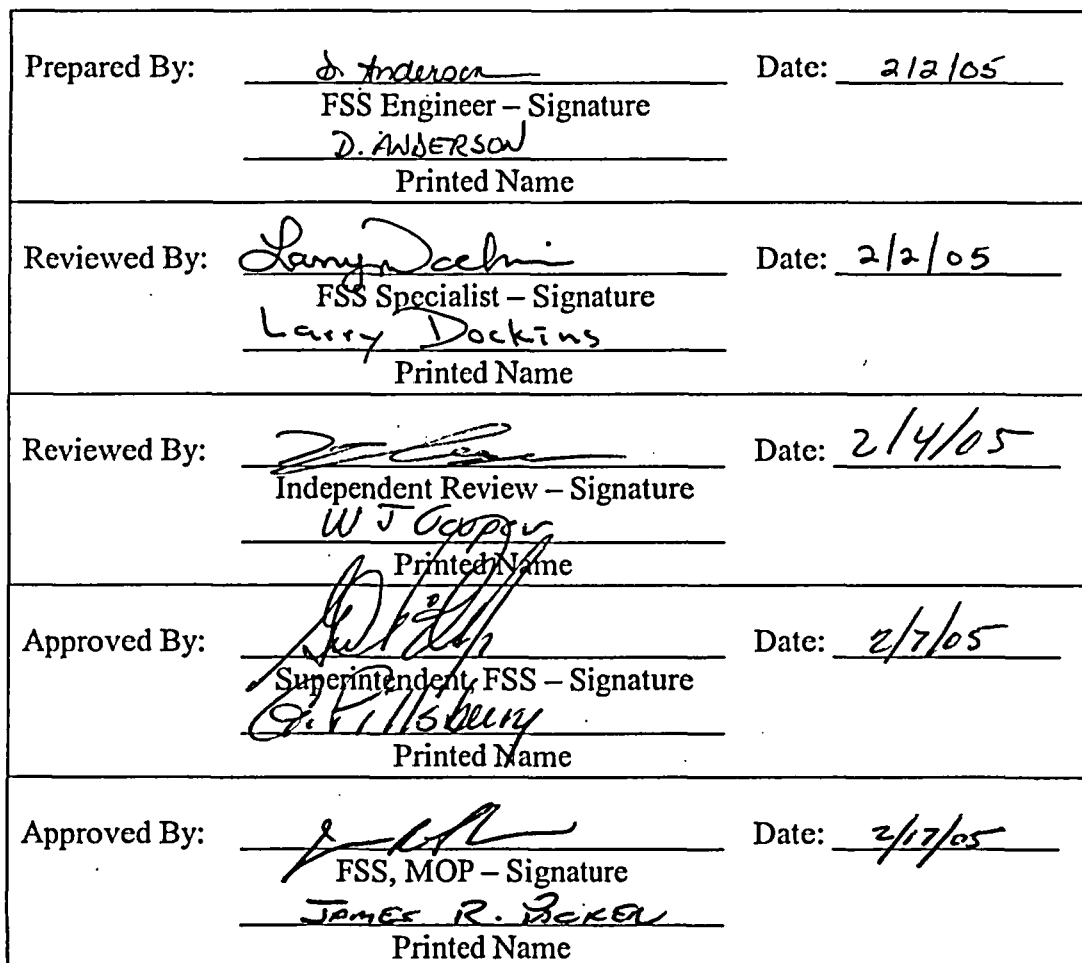 Prepared By: D. Anderson Date: 2/2/05
FSS Engineer – Signature
D. ANDERSON
Printed Name
Reviewed By: Larry Dockins Date: 2/2/05
FSS Specialist – Signature
Larry Dockins
Printed Name
Reviewed By: Date: 2/4/05
Independent Review – Signature
W J Cooper
Printed Name
Approved By: Date: 2/7/05
Superintendent, FSS – Signature
G. Pillsbury
Printed Name
Approved By: Date: 2/17/05
FSS, MOP – Signature
JAMES R.
Printed Name